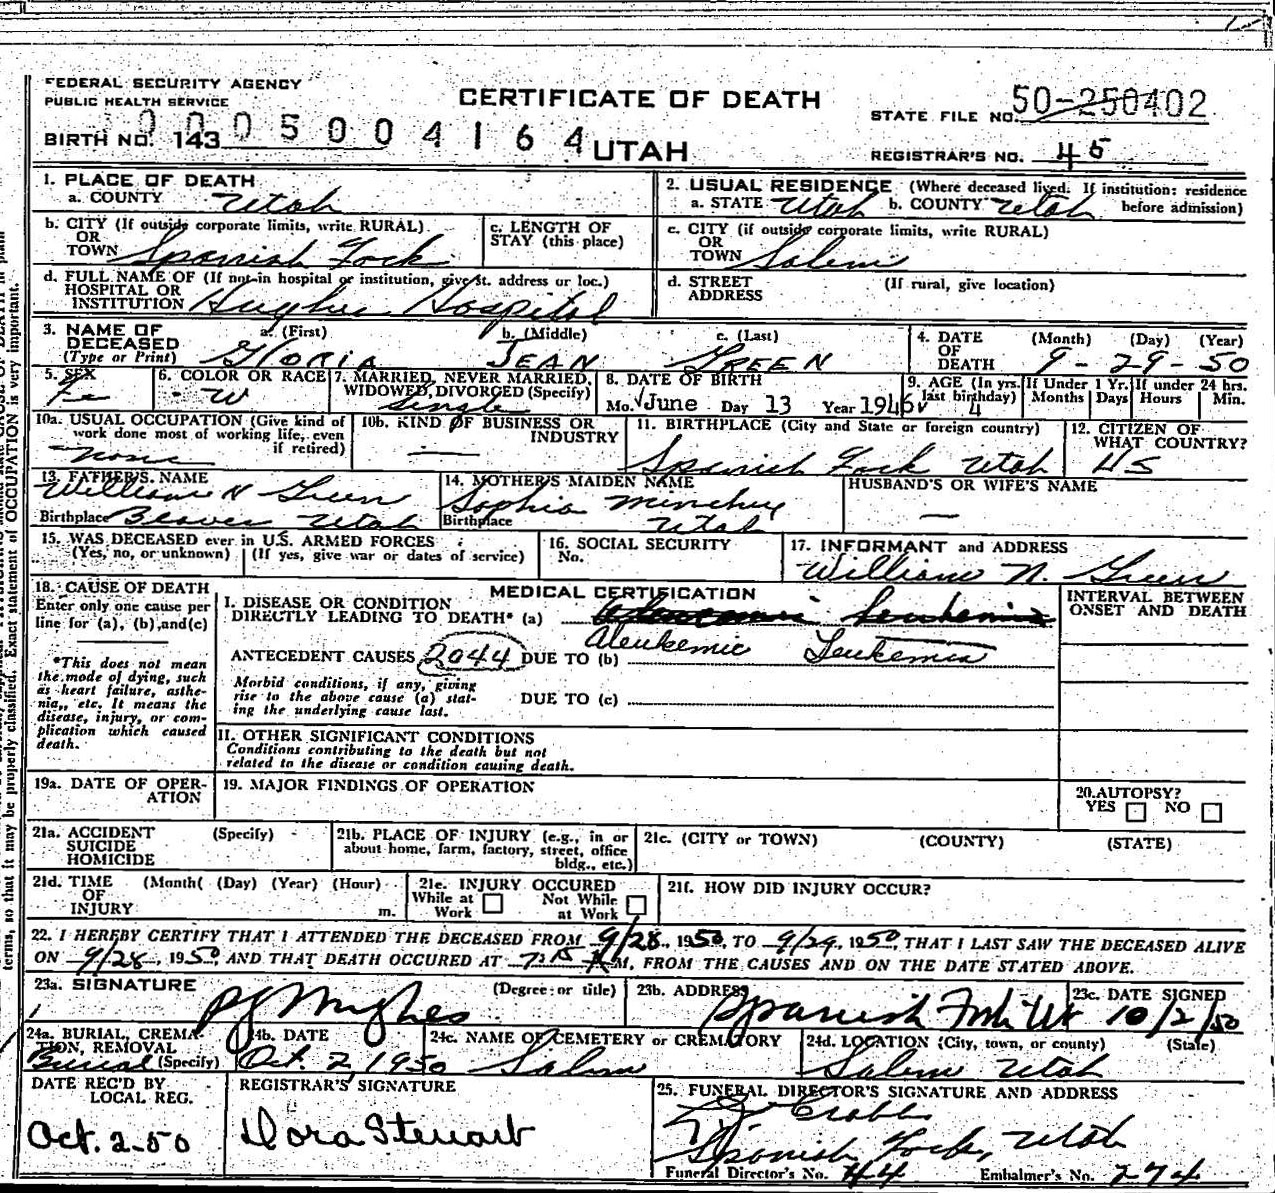 FEDERAL SECURITY AGENCY
PUBLIC HEALTH SERVICE
CERTIFICATE OF DEATH
STATE FILE NO. 50-250402
BIRTH NO. 143 0005004164
UTAH
REGISTRAR'S NO. 45
1. PLACE OF DEATH
a. COUNTY Utah
2. USUAL RESIDENCE (Where deceased lived. If institution: residence before admission)
a. STATE Utah b. COUNTY Utah
b. CITY (If outside corporate limits, write RURAL)
OR
TOWN Spanish Fork
c. LENGTH OF
STAY (this place)
c. CITY (if outside corporate limits, write RURAL)
OR
TOWN Salem
d. FULL NAME OF (If not in hospital or institution, give st. address or loc.)
HOSPITAL OR
INSTITUTION Hughes Hospital
d. STREET (If rural, give location)
ADDRESS
3. NAME OF
DECEASED
(Type or Print)
a. (First) b. (Middle) c. (Last)
GLORIA JEAN GREEN
4. DATE
OF
DEATH
(Month) (Day) (Year)
9-29-50
5. SEX
Fe
6. COLOR OR RACE
W
7. MARRIED, NEVER MARRIED,
WIDOWED, DIVORCED (Specify)
Single
8. DATE OF BIRTH
Mo. June Day 13 Year 1946
9. AGE (In yrs. last birthday)
4
If Under 1 Yr.
Months Days
If under 24 hrs.
Hours Min.
10a. USUAL OCCUPATION (Give kind of
work done most of working life, even
if retired)
none
10b. KIND OF BUSINESS OR
INDUSTRY
—
11. BIRTHPLACE (City and State or foreign country)
Spanish Fork Utah
12. CITIZEN OF
WHAT COUNTRY?
US
13. FATHER'S NAME
William N Green
Birthplace Beaver Utah
14. MOTHER'S MAIDEN NAME
Sophia
Birthplace Utah
HUSBAND'S OR WIFE'S NAME
—
15. WAS DECEASED ever in U.S. ARMED FORCES
(Yes, no, or unknown) (If yes, give war or dates of service)
16. SOCIAL SECURITY
No.
17. INFORMANT and ADDRESS
William N. Green
18. CAUSE OF DEATH
Enter only one cause per
line for (a), (b), and (c)
*This does not mean
the mode of dying, such
as heart failure, asthe-
nia,, etc. It means the
disease, injury, or com-
plication which caused
death.
MEDICAL CERTIFICATION
I. DISEASE OR CONDITION
DIRECTLY LEADING TO DEATH* (a) Leukemia
ANTECEDENT CAUSES 2044 DUE TO (b) Aleukemic Leukemia
Morbid conditions, if any, giving
rise to the above cause (a) stat-
ing the underlying cause last.
DUE TO (c)
INTERVAL BETWEEN
ONSET AND DEATH
II. OTHER SIGNIFICANT CONDITIONS
Conditions contributing to the death but not
related to the disease or condition causing death.
19a. DATE OF OPER-
ATION
19. MAJOR FINDINGS OF OPERATION
20. AUTOPSY?
YES NO
21a. ACCIDENT (Specify)
SUICIDE
HOMICIDE
21b. PLACE OF INJURY (e.g., in or
about home, farm, factory, street, office
bldg., etc.)
21c. (CITY or TOWN) (COUNTY) (STATE)
21d. TIME (Month( (Day) (Year) (Hour)
OF
INJURY m.
21e. INJURY OCCURED
While at Work Not While at Work
21f. HOW DID INJURY OCCUR?
22. I HEREBY CERTIFY THAT I ATTENDED THE DECEASED FROM 9/28, 1950, TO 9/29, 1950, THAT I LAST SAW THE DECEASED ALIVE
ON 9/28, 1950, AND THAT DEATH OCCURED AT 7:15 M, FROM THE CAUSES AND ON THE DATE STATED ABOVE.
23a. SIGNATURE (Degree or title)
PJ Hughes
23b. ADDRESS
Spanish Fork Ut
23c. DATE SIGNED
10/2/50
24a. BURIAL, CREMA-
TION, REMOVAL
(Specify)
Burial
24b. DATE
Oct. 2, 1950
24c. NAME OF CEMETERY or CREMATORY
Salem
24d. LOCATION (City, town, or county) (State)
Salem Utah
DATE REC'D BY
LOCAL REG.
Oct. 2-50
REGISTRAR'S SIGNATURE
Dora Stewart
25. FUNERAL DIRECTOR'S SIGNATURE AND ADDRESS
Spanish Fork, Utah
Funeral Director's No. 44 Embalmer's No. 274
terms, so that it may be properly classified. Exact statement of OCCUPATION is very important.